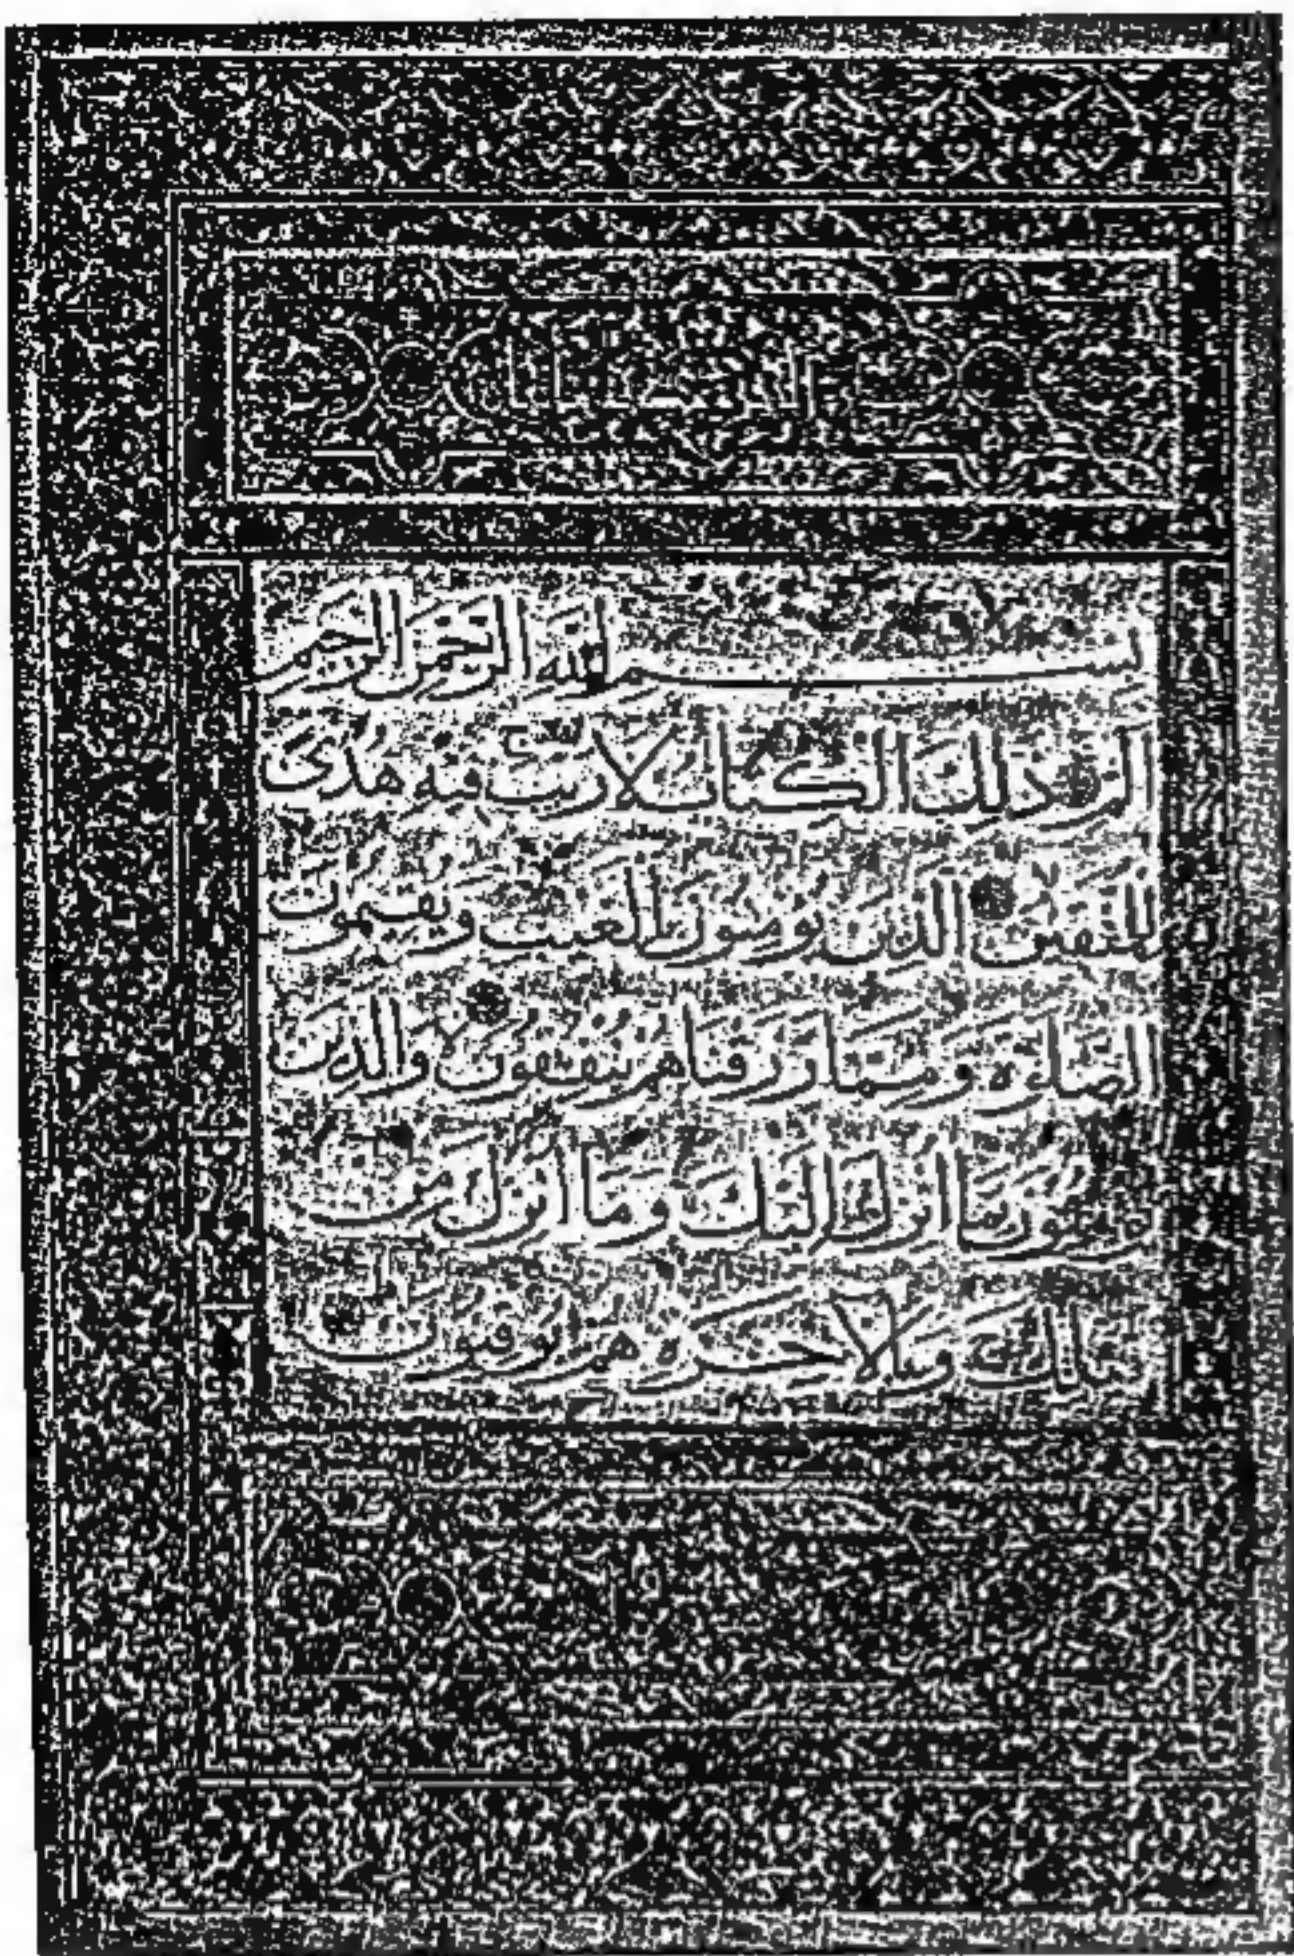 بِسْمِ اللَّهِ الرَّحْمَنِ الرَّحِيمِ
الم ذَلِكَ الْكِتَابُ لَا رَيْبَ فِيهِ هُدًى
لِلْمُتَّقِينَ الَّذِينَ يُؤْمِنُونَ بِالْغَيْبِ وَيُقِيمُونَ
الصَّلَوةَ وَمِمَّا رَزَقْنَاهُمْ يُنْفِقُونَ وَالَّذِينَ
يُؤْمِنُونَ بِمَا أُنْزِلَ إِلَيْكَ وَمَا أُنْزِلَ مِنْ
قَبْلِكَ وَبِالْآخِرَةِ هُمْ يُوقِنُونَ